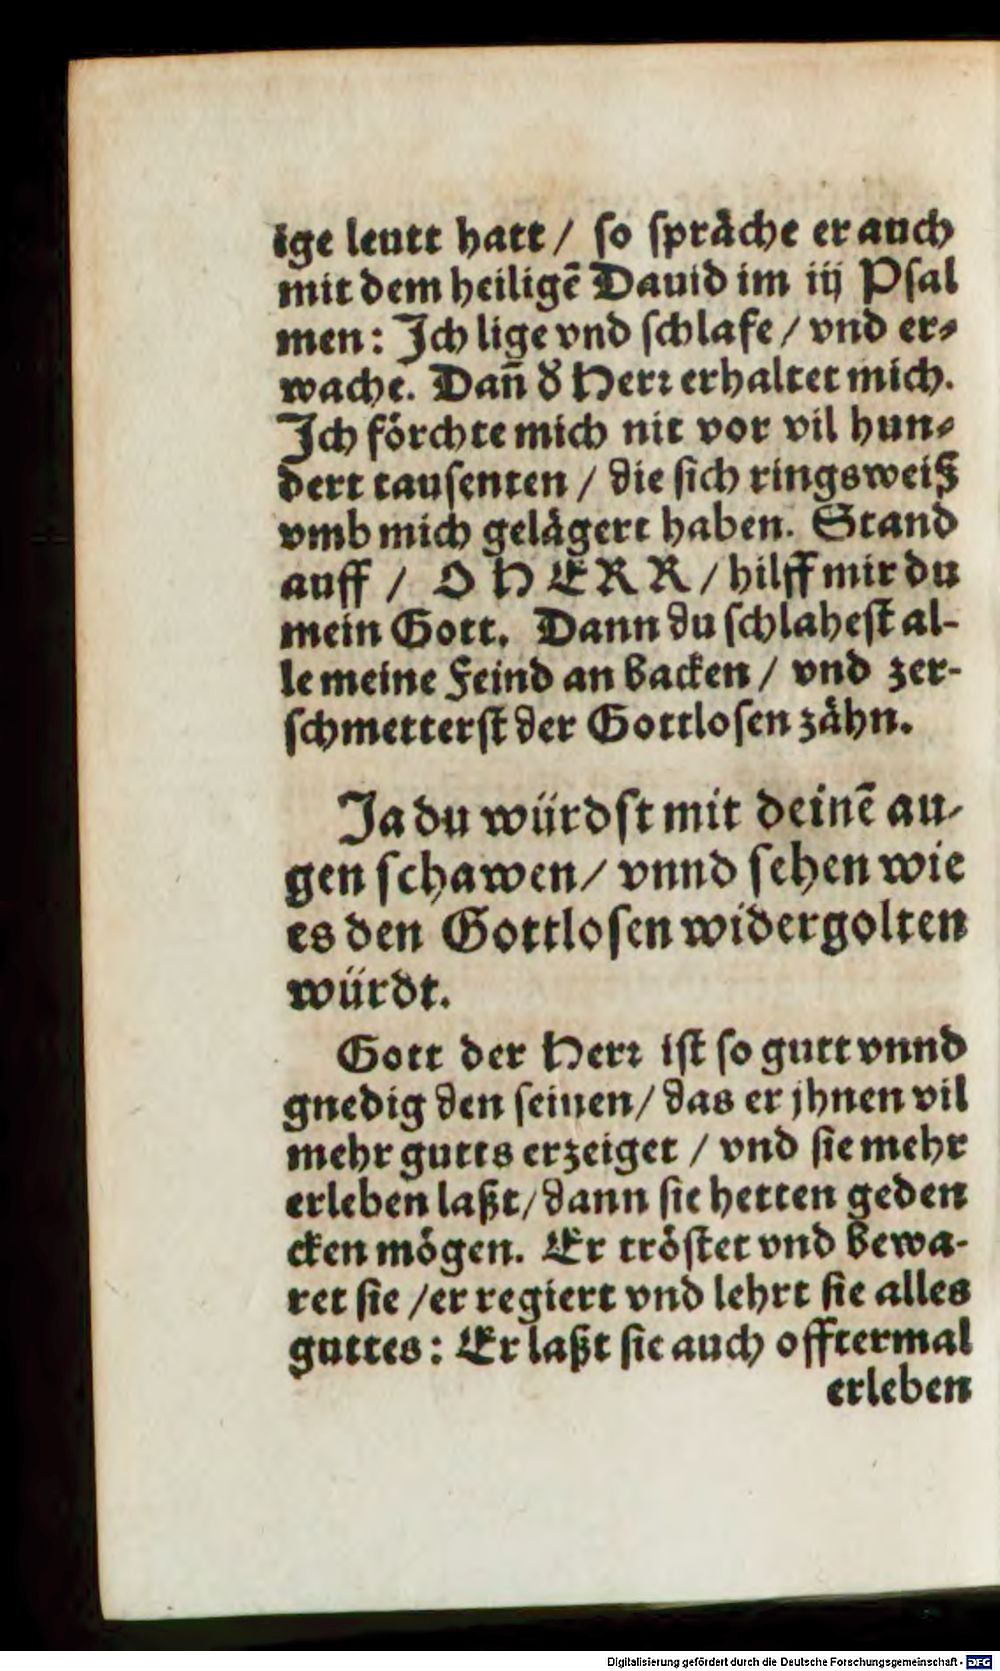 ige leutt hatt / so spräche er auch
mit dem heiligẽ Dauid im iij Psal
men: Ich lige vnd schlafe / vnd er⸗
wache. Dañ d̕ Herr erhaltet mich.
Ich förchte mich nit vor vil hun⸗
dert tausenten / die sich ringsweiß
vmb mich gelägert haben. Stand
auff / O HERR / hilff mir du
mein Gott. Dann du schlahest al-
le meine Feind an backen / vnd zer-
schmetterst der Gottlosen zähn.
Ja du würdst mit deinẽ au-
gen schawen / vnnd sehen wie
es den Gottlosen widergolten
würdt.
Gott der Herr ist so gutt vnnd
gnedig den seinen / das er jhnen vil
mehr gutts erzeiget / vnd sie mehr
erleben laßt / dann sie hetten geden
cken mögen. Er tröstet vnd bewa-
ret sie / er regiert vnd lehrt sie alles
guttes: Er laßt sie auch offtermal
erleben
Digitalisierung gefördert durch die Deutsche Forschungsgemeinschaft - DFG